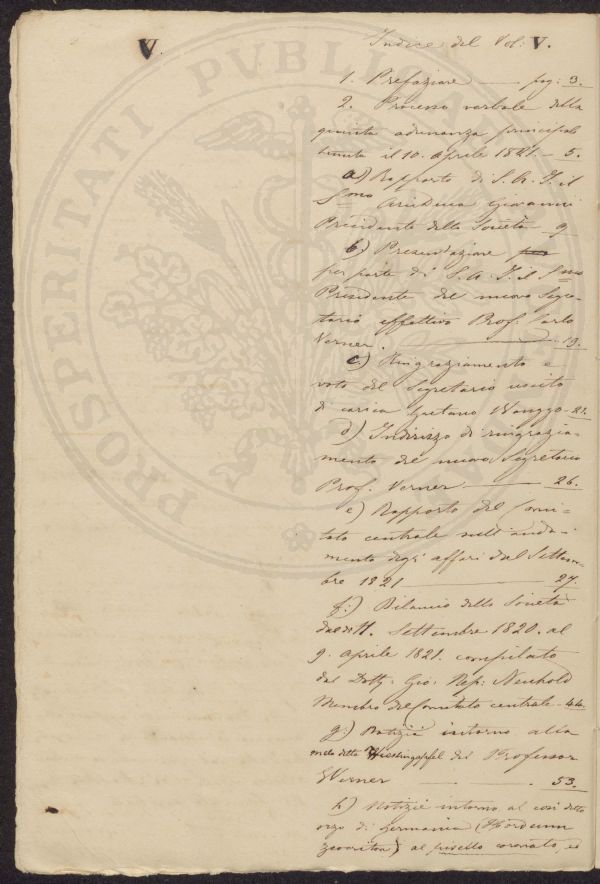 V.
Indice del Vol: V.
1. Prefazione — pag: 3.
2. Processo verbale della
quinta adunanza principal
tenuta il 10. Aprile 1821. — 5.
a) Rapporto di S. A. I. il
Smo Arciduca Giovanni
Presidente della Società — 9
b.) Presentazione
per parte di S. A. I. il Smo
Presidente del nuovo Segre-
tario effettivo Prof. Carlo
Verner. — 19.
c.) Ringraziamento e
voto del Segretario uscito
di carica Gaetano — 21.
d) Indirizzo di ringrazia-
mento del nuovo Segretario
Prof. Verner. — 26.
e) Rapporto del Comi-
tato centrale sull'anda-
mento degl' affari dal Settem-
bre 1821 — 27.
f.) Bilancio della Società
11. Settembre 1820. al
9. Aprile 1821. compilato
dal Dott. Gio: Nep: Neuhold
Membro del Comitato centrale — 44.
g.) Notizie intorno alla
mela detta del Professor
Werner — 53.
h) Notizie intorno al così detto
orzo di Germania (Hordeum
zeocriton) al pisello coronato, ed
PROSPERITATI PVBLICAE